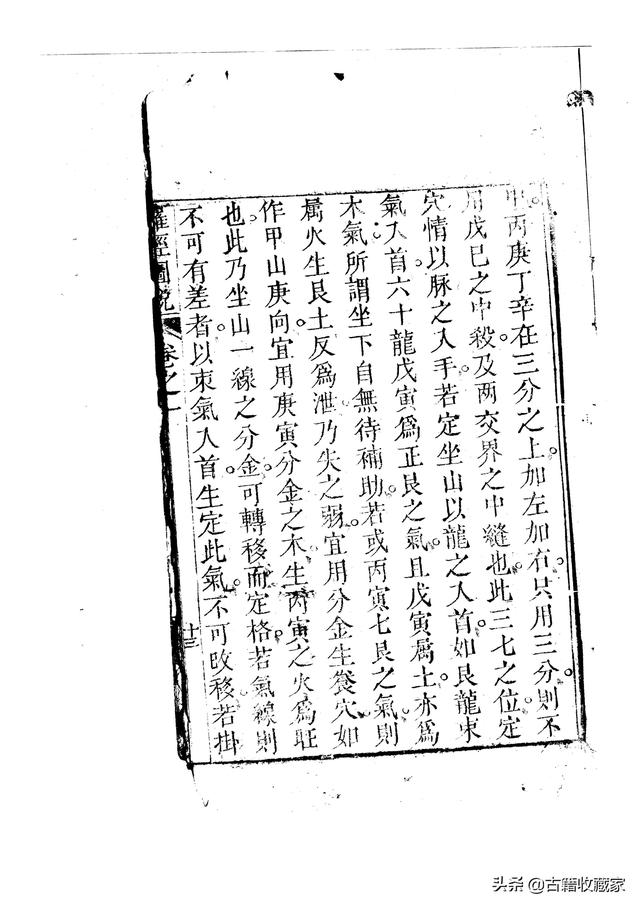 甲丙庚丁辛在三分之上加左加右只用三分則不
用戊巳之中殺及两交界之中縫也此三七之位定
穴情以脉之入手若定坐山以龍之入首如艮龍束
氣入首六十龍戊寅爲正艮之氣且戊寅属土亦爲
木氣所謂坐下自無待補助若或丙寅七艮之氣則
属火生艮土反爲泄乃失之弱宜用分金生養穴如
作甲山庚向宜用庚寅分金之木生丙寅之火爲旺
也此乃坐山一線之分金可轉移而定格若氣線則
不可有差者以束氣入首生定此氣不可改移若掛
羅經圖説 卷之一 十三
头条 @古籍收藏家